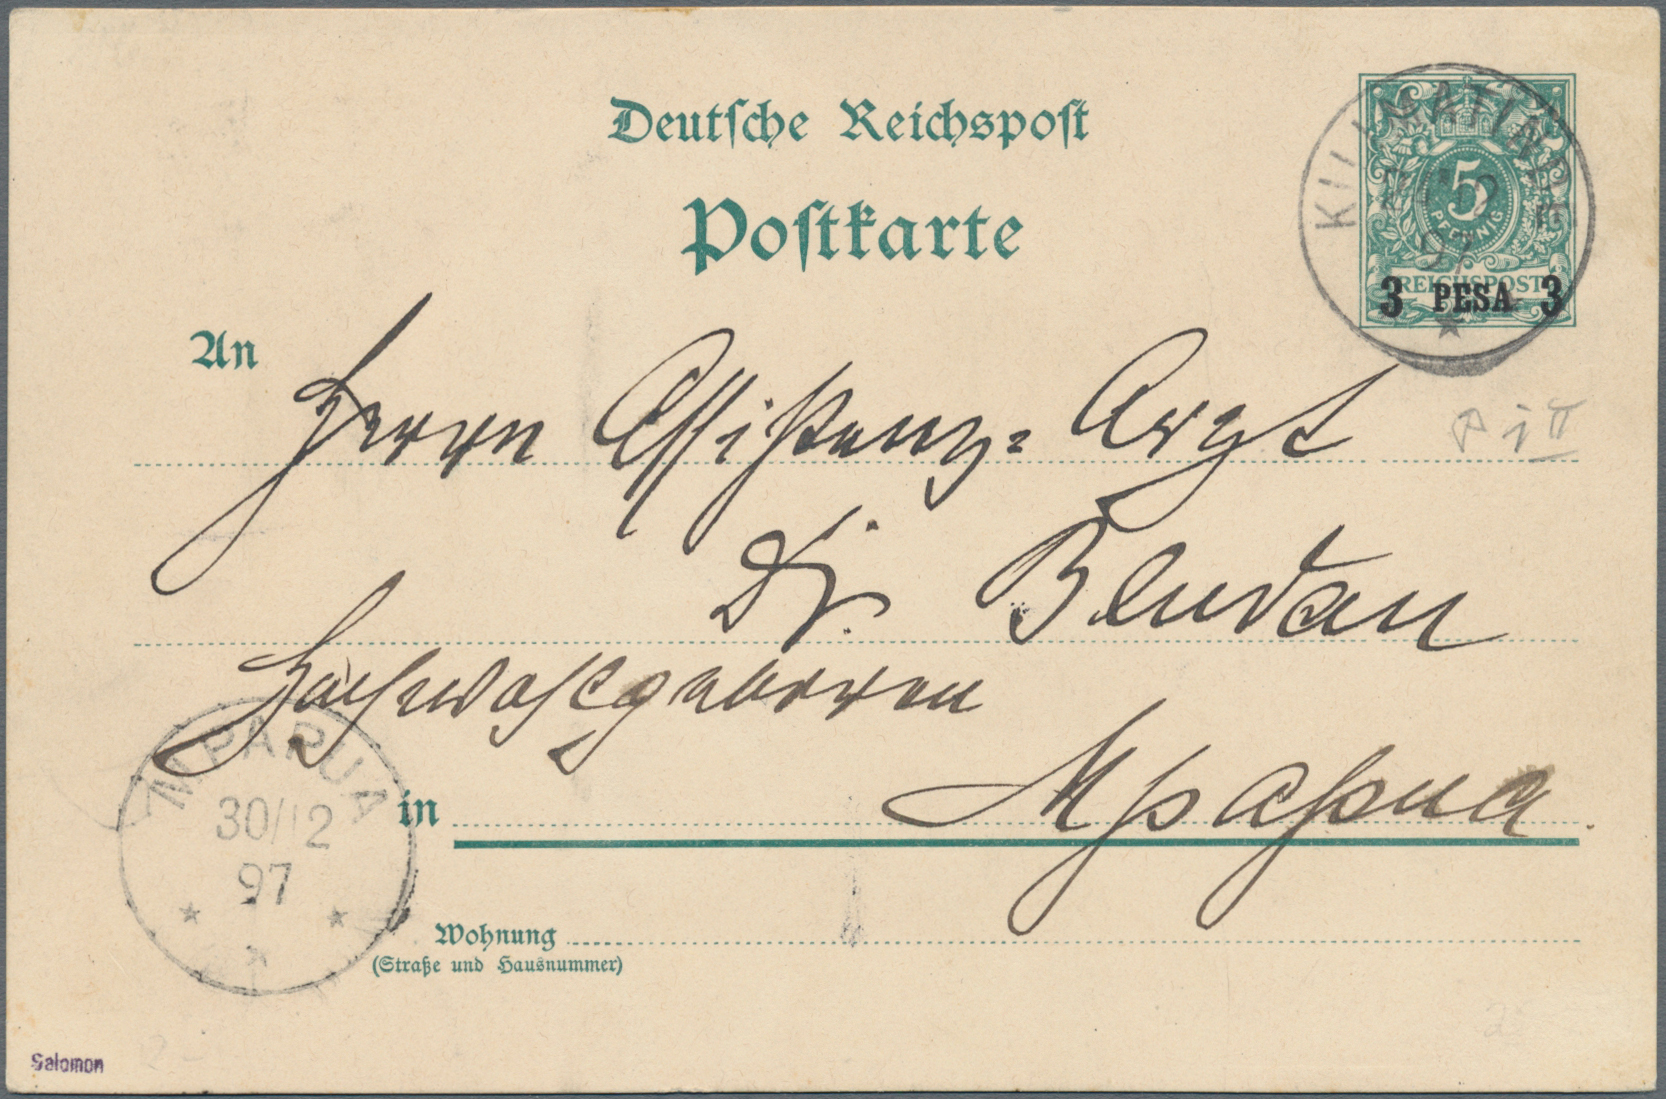 Deutsche Reichspost
Postkarte
KILIMATINDE
12
97
5
PFENNIG
REICHSPOST
3 PESA 3
An
Herrn Assistenz-Arzt
Dr. Bludau
Hochwohlgeboren
Mpapua
in
MPAPUA
30/12
97
Wohnung
(Straße und Hausnummer)
Salomon